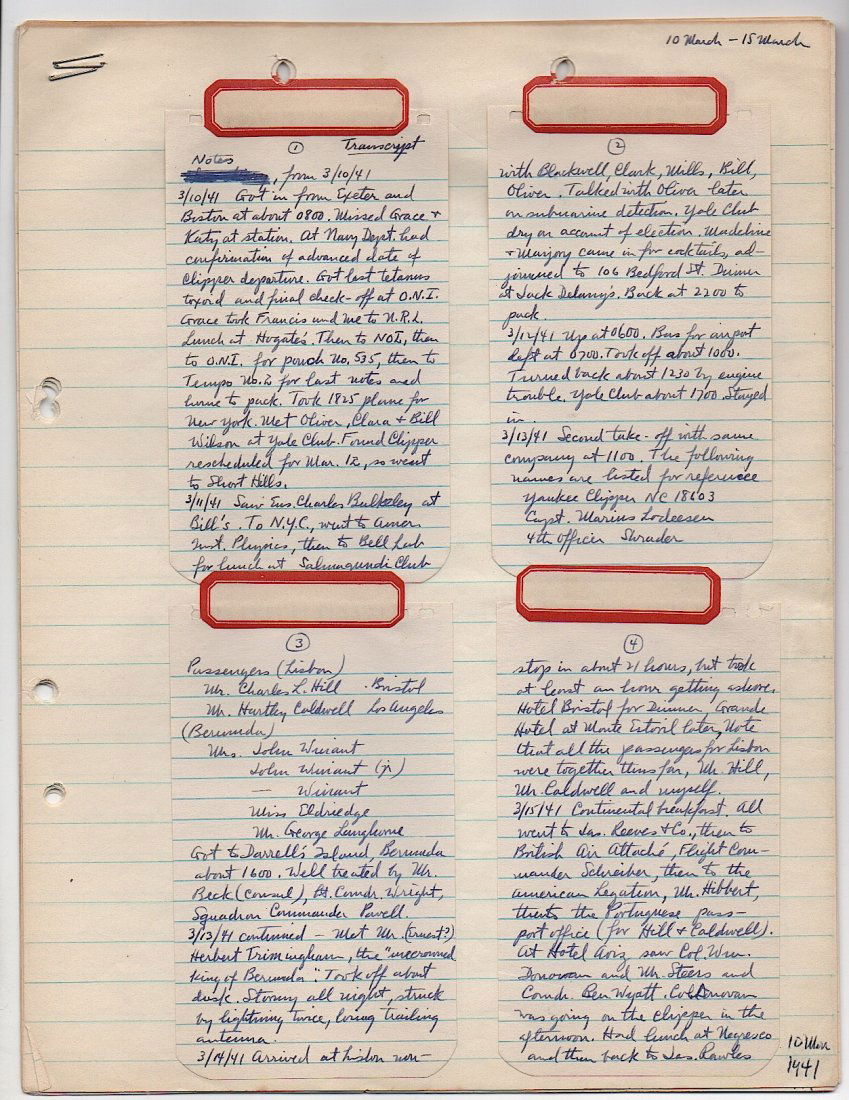 10 March – 15 March
① Transcript
Notes
, from 3/10/41
3/10/41 Got in from Exeter and
Boston at about 0800. Missed Grace +
Katy at station. At Navy Dept. had
confirmation of advanced date of
Clipper departure. Got last tetanus
toxoid and final check-off at O.N.I.
Grace took Francis and me to N.R.L.
Lunch at Hogate's. Then to NOI, then
to O.N.I. for pouch No. 535, then to
Tempo No. 2 for last notes and
home to pack. Took 1825 plane for
New York. Met Oliver, Clara + Bill
Wilson at Yale Club. Found Clipper
rescheduled for Mar. 12, so went
to Short Hills.
3/11/41 Saw Ens. Charles Bulkeley at
Bill's. To N.Y.C., went to Amer.
Inst. Physics, then to Bell Lab
for lunch at Salmagundi Club
②
with Blackwell, Clark, Mills, Bill,
Oliver. Talked with Oliver later
on submarine detection. Yale Club
dry on account of election. Madeline
+ Marjory came in for cocktails, ad-
journed to 106 Bedford St. Dinner
at Jack Delany's. Back at 2200 to
pack.
3/12/41 Up at 0600. Bus for airport
left at 0700. Took off about 1000.
Turned back about 1230 by engine
trouble. Yale Club about 1700. Stayed
in.
3/13/41 Second take-off with same
company at 1100. The following
names are listed for reference
Yankee Clipper NC 18603
Capt. Marius Lodeesen
4th Officer Shrader
③
Passengers (Lisbon)
Mr. Charles L. Hill Bristol
Mr. Hartley Caldwell Los Angeles
(Bermuda)
Mrs. John Winant
John Winant (jr)
— Winant
Miss Eldredge
Mr. George Langhorne
Got to Darrell's Island, Bermuda
about 1600. Well treated by Mr.
Beck (Consul), Lt. Comdr. Wright,
Squadron Commander Powell.
3/13/41 continued – Met Mr. (Ernest?)
Herbert Trimingham, the "uncrowned
King of Bermuda". Took off about
dusk. Stormy all night, struck
by lightning twice, losing trailing
antenna.
3/14/41 Arrived at Lisbon non-
④
stop in about 21 hours, but took
at least an hour getting ashore.
Hotel Bristol for Dinner. Grande
Hotel at Monte Estoril later. Note
that all the passengers for Lisbon
were together thus far, Mr. Hill,
Mr. Caldwell and myself.
3/15/41 Continental breakfast. All
went to Jas. Reeves + Co., then to
British Air Attaché, Flight Com-
mander Schreiber, then to the
American Legation, Mr. Hibbert,
thento the Portuguese pass-
port office (for Hill + Caldwell).
At Hotel Aviz saw Col. Wm.
Donovan and Mr. Steers and
Comdr. Ben Wyatt. Col. Donovan
was going on the clipper in the
afternoon. Had lunch at Negresco
and then back to Jas. Rawes
10 Mar
1941